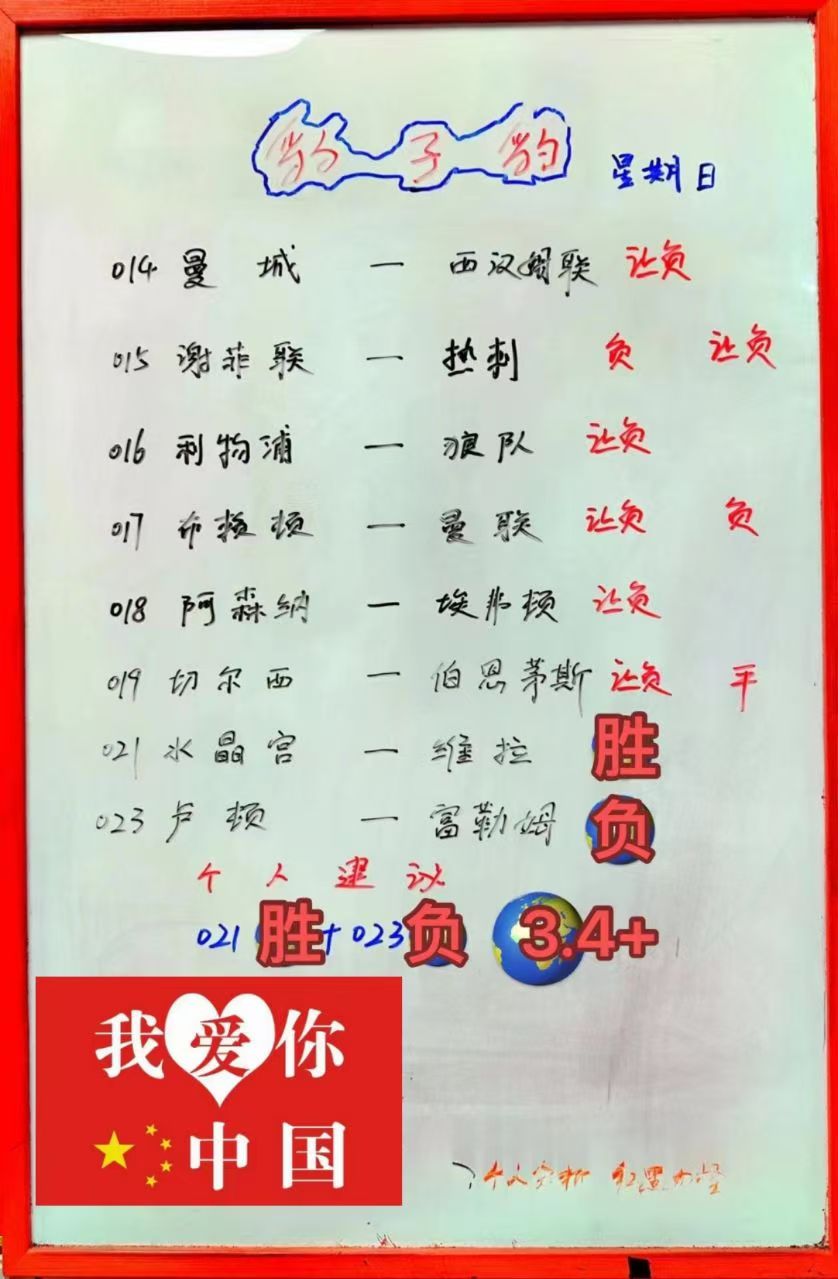 豹子豹 星期日
014 曼城 — 西汉姆联 让负
015 谢菲联 — 热刺 负 让负
016 利物浦 — 狼队 让负
017 布顿顿 — 曼联 让负 负
018 阿森纳 — 埃弗顿 让负
019 切尔西 — 伯恩茅斯 让负 平
021 水晶宫 — 维拉 胜
023 卢顿 — 富勒姆 负
个人建议
021 胜 + 023 负 3.4+
我爱你
中国
个人